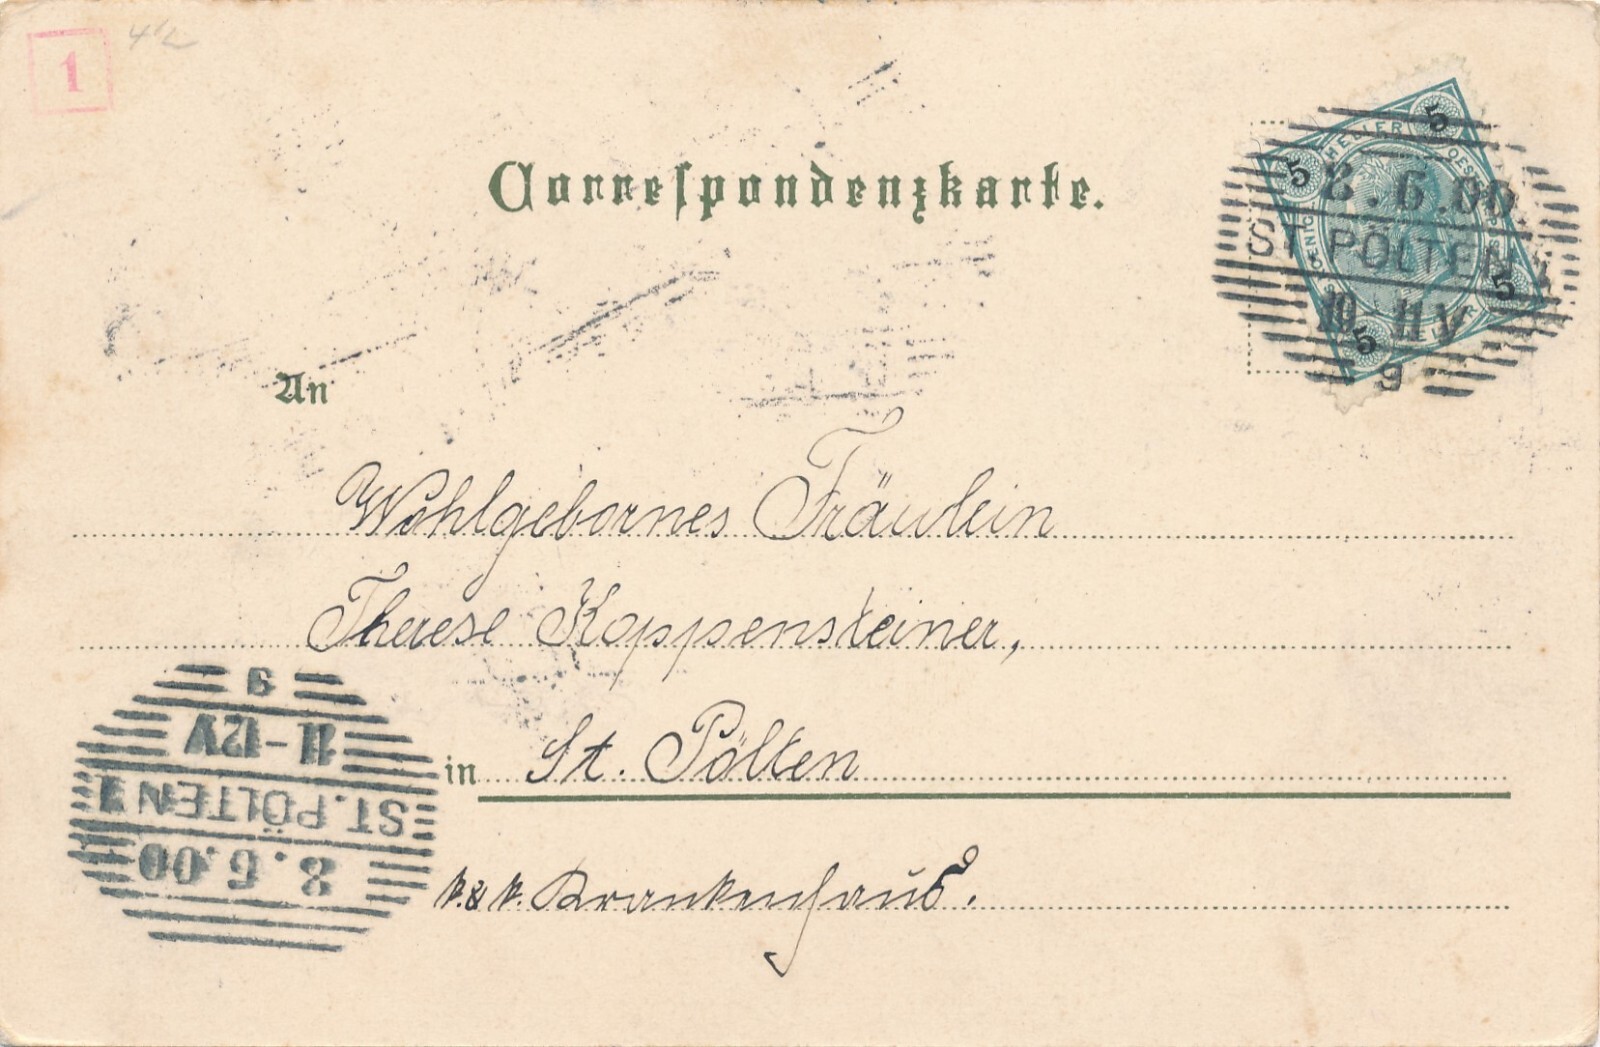 1
4/2
Correspondenzkarte.
5 HELLER 5
8.6.00
ST. PÖLTEN 1
10-11V
5 5
9
An
Wohlgebornes Fräulein
Therese Koppensteiner,
in St. Pölten
k. & k. Krankenhaus.
9
11-12V
ST. PÖLTEN 1
8.6.00